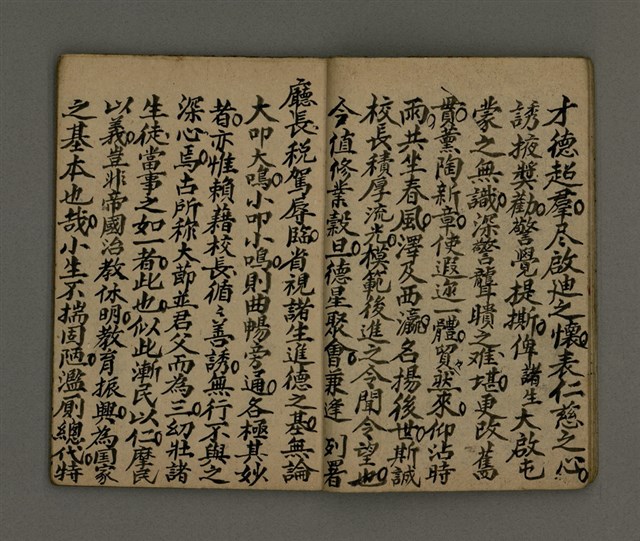 才德起羣尽啟迪之懷表仁慈之心
誘掖獎勸警覺提撕俾諸生大啟屯
蒙之無識深警聾瞶之难堪更改舊
貫薰陶新章使遐迩一體貿々然來仰沾時
雨共坐春風澤及西瀛名揚後世斯誠
校長積厚流光模範後進之令聞令望也
今值修業穀旦德星聚會兼逢列署
廳長税駕辱臨省視諸生進德之基無論
大叩大鳴小叩小鳴則曲暢旁通各極其妙
者亦惟賴藉校長循々善誘無行不與之
深心焉古所称大節並君父而為三幼壯諸
生徒當事之如一者此也似此漸民以仁摩民
以義豈非帝國治教休明教育振興為国家
之基本也哉小生不揣固陋濫厠總代特